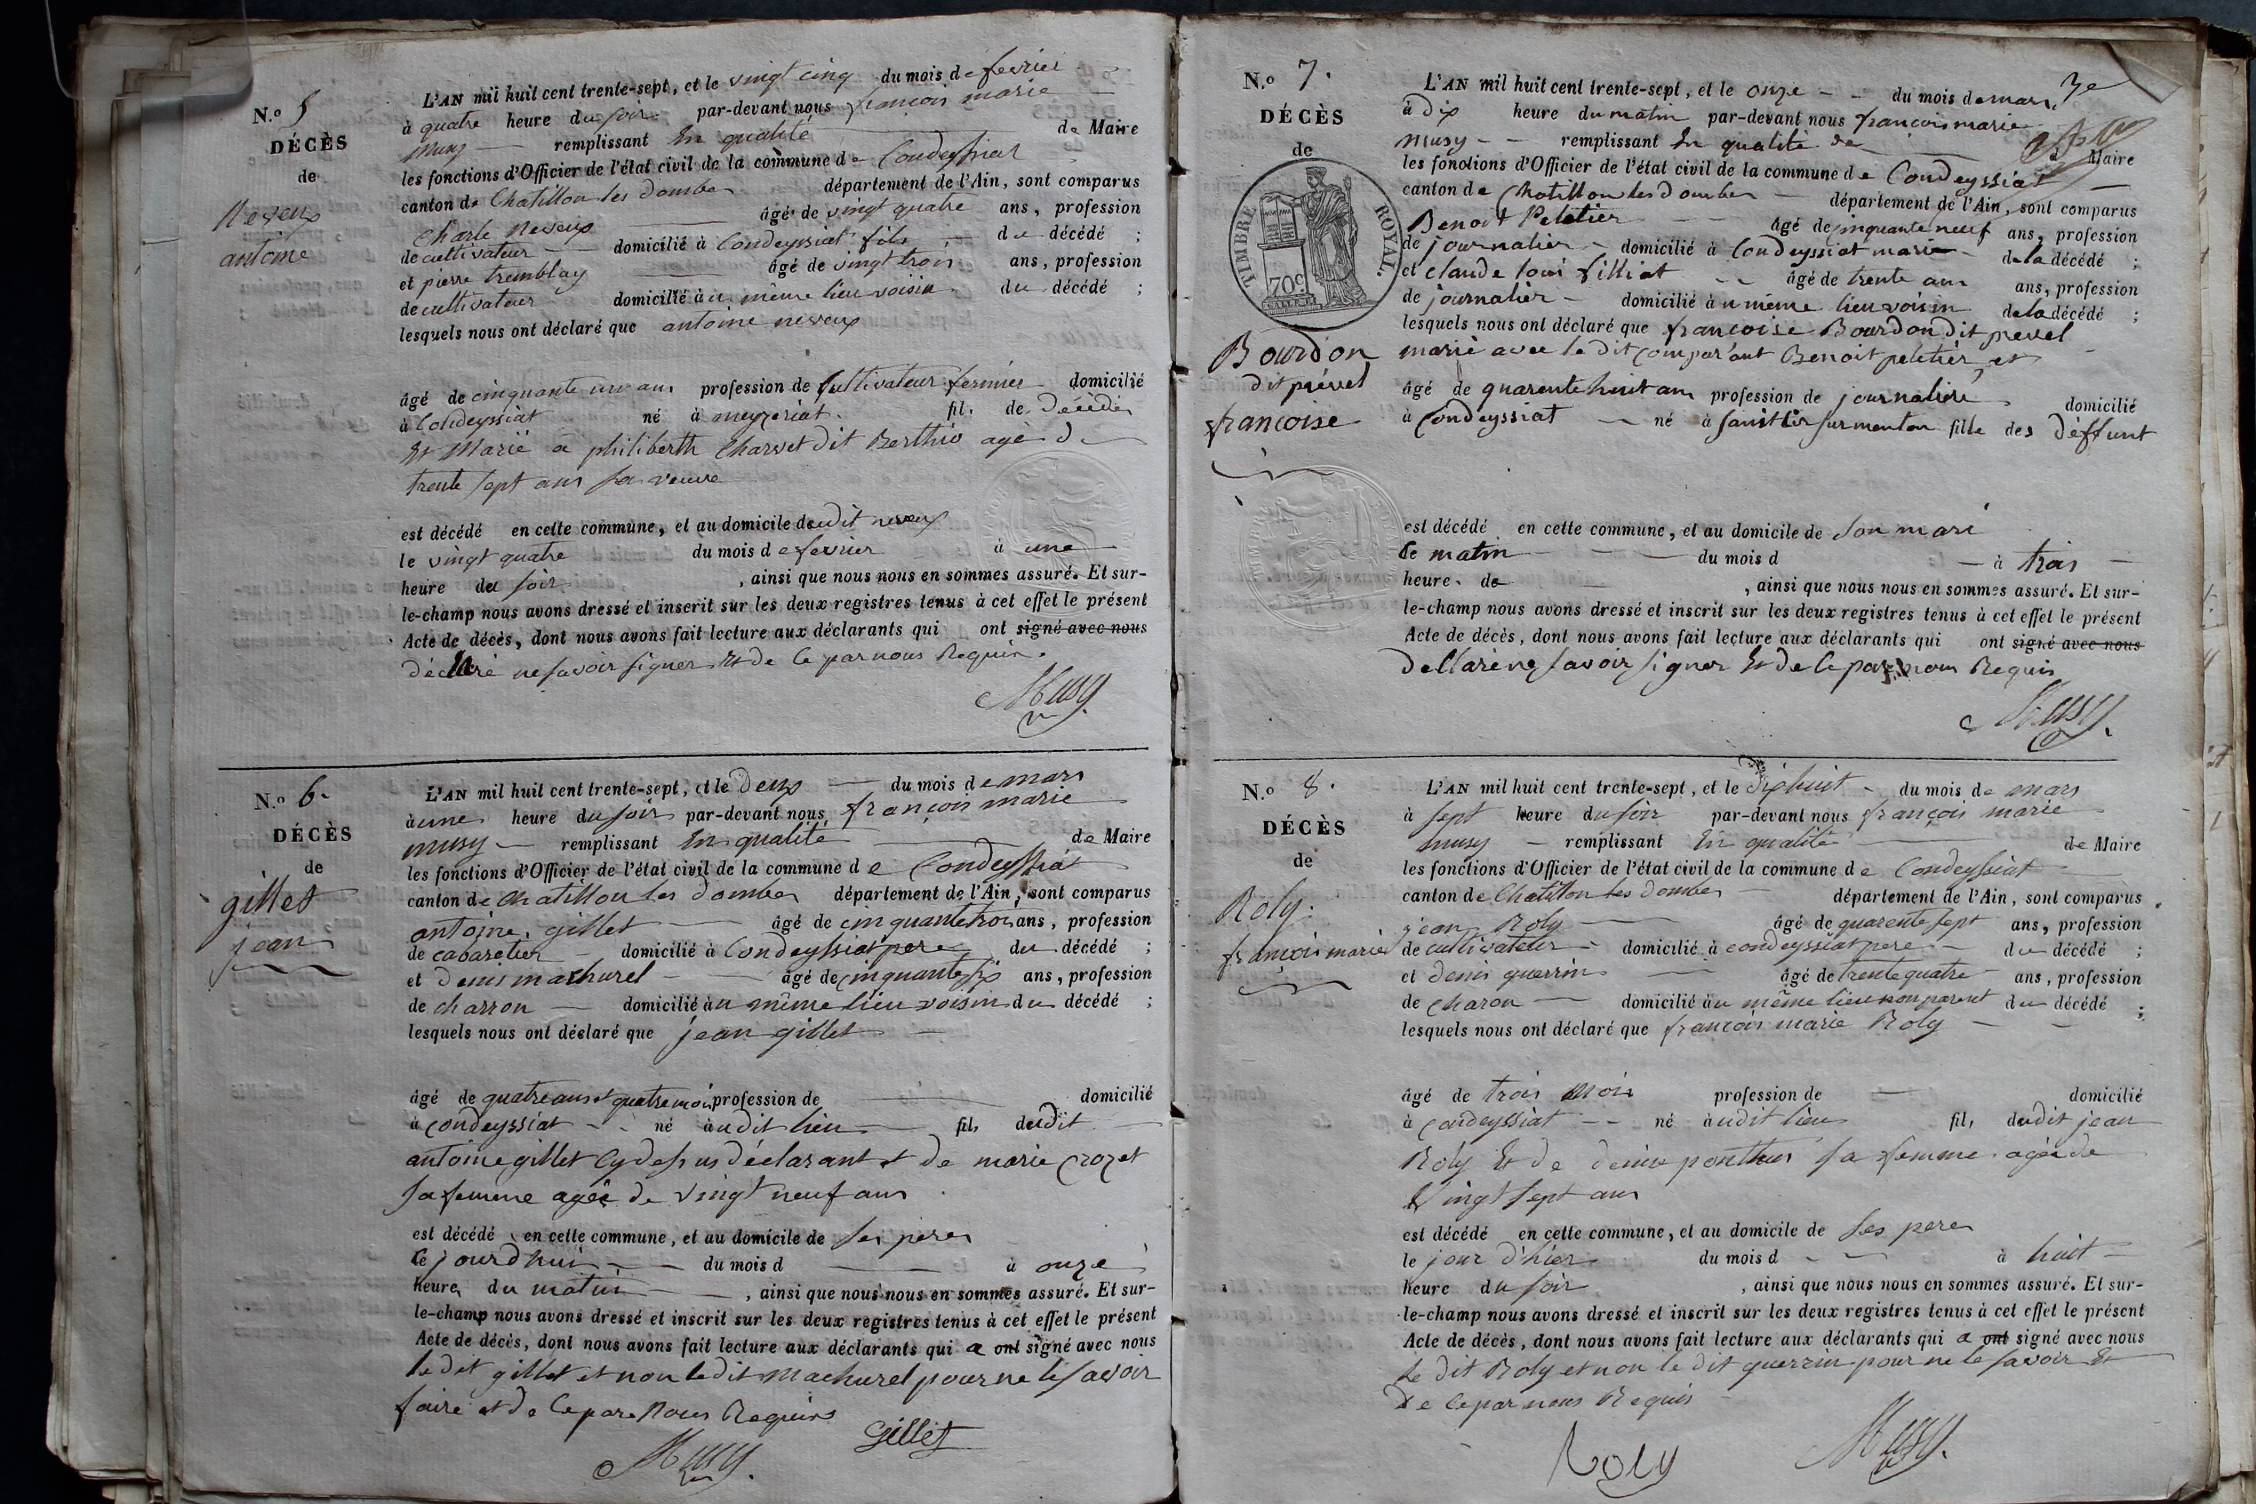 N.o 5
DÉCÈS
de
Neveux
antoine
L'AN mil huit cent trente-sept, et le vingt cinq du mois de fevrier
à quatre heure du soir par-devant nous françois marie
musy remplissant En qualité de Maire
les fonctions d'Officier de l'état civil de la commune de Condeyssiat
canton de Chatillon les dombes département de l'Ain, sont comparus
Charle neveux âgé de vingt quatre ans, profession
de cultivateur domicilié à Condeyssiat fils du décédé ;
et pierre tremblay âgé de vingt trois ans, profession
de cultivateur domicilié à u même lieu voisin du décédé ;
lesquels nous ont déclaré que antoine neveux
âgé de cinquante un ans profession de Cultivateur fermier domicilié
à Condeyssiat né à meyzeriat. fils de Décédés
Et Marié a philiberth Charvet dit Berthio agé de
trente sept ans sa veuve
est décédé en cette commune, et au domicile dudit neveux
le vingt quatre du mois de fevrier à une
heure du soir , ainsi que nous nous en sommes assuré. Et sur-
le-champ nous avons dressé et inscrit sur les deux registres tenus à cet effet le présent
Acte de décès, dont nous avons fait lecture aux déclarants qui ont signé avec nous
déclaré ne savoir signer Et de ce par nous Requis.
Musy
N.o 6.
DÉCÈS
de
gillet
jean
L'AN mil huit cent trente-sept, et le Deux du mois de mars
à une heure du soir par-devant nous françois marie
musy remplissant En qualité de Maire
les fonctions d'Officier de l'état civil de la commune de Condeyssiat
canton de Chatillon les dombes département de l'Ain, sont comparus
antoine gillet âgé de cinquante trois ans, profession
de cabaretier domicilié à Condeyssiat pere du décédé ;
et Denis machurel âgé de cinquante six ans, profession
de charron domicilié à u même lieu voisin du décédé ;
lesquels nous ont déclaré que jean gillet
âgé de quatre ans et quatre mois profession de domicilié
à Condeyssiat né à udit lieu fils dudit
antoine gillet Cy dessus déclarant et de marie Crozet
sa femme agée de vingt neuf ans
est décédé en cette commune, et au domicile de ses peres
le jourdhui du mois d à onze
heure du matin , ainsi que nous nous en sommes assuré. Et sur-
le-champ nous avons dressé et inscrit sur les deux registres tenus à cet effet le présent
Acte de décès, dont nous avons fait lecture aux déclarants qui a ont signé avec nous
le dit gillet et non ledit Machurel pour ne le savoir
faire et de ce par Nous Requis
Musy. Gillet
N.o 7.
DÉCÈS
de
TIMBRE ROYAL.
70c
Bourdon
dit prevel
francoise
L'AN mil huit cent trente-sept, et le onze du mois de mars 3e
à dix heure du matin par-devant nous françois marie
musy remplissant En qualité de Maire
les fonctions d'Officier de l'état civil de la commune de Condeyssiat
canton de Chatillon les dombes département de l'Ain, sont comparus
Benoit Peletier âgé de cinquante neuf ans, profession
de journalier domicilié à Condeyssiat marie de la décédé ;
et claude loui filliat âgé de trente ans ans, profession
de journalier domicilié à u même lieu voisin de la décédé ;
lesquels nous ont déclaré que francoise Bourdon dit prevel
marié avec le dit comparant Benoit peletier, et
âgé de quarente huit ans profession de journaliere domicilié
à Condeyssiat né à sanit Cir sur menton fille des Déffunt
est décédé en cette commune, et au domicile de son mari
le matin du mois d à trois
heure de , ainsi que nous nous en sommes assuré. Et sur-
le-champ nous avons dressé et inscrit sur les deux registres tenus à cet effet le présent
Acte de décès, dont nous avons fait lecture aux déclarants qui ont signé avec nous
declaré ne savoir signer Et de Ce par nous Requis
Musy.
N.o 8.
DÉCÈS
de
Roly.
françois marie
L'AN mil huit cent trente-sept, et le Dixhuit du mois de mars
à sept heure du soir par-devant nous françois marie
musy remplissant En qualité de Maire
les fonctions d'Officier de l'état civil de la commune de Condeyssiat
canton de Chatillon les dombes département de l'Ain, sont comparus
jean Roly âgé de quarente sept ans, profession
de cultivateur domicilié à condeyssiat pere du décédé ;
et denis guerrin âgé de trente quatre ans, profession
de charon domicilié à u même lieu non parent du décédé ;
lesquels nous ont déclaré que françois marie Roly
âgé de trois mois profession de domicilié
à condeyssiat né à udit lieu fils dudit jean
Roly Et de denise ponthus sa femme agée de
Vingt sept ans
est décédé en cette commune, et au domicile de ses peres
le jour d'hier du mois d à huit
heure du soir , ainsi que nous nous en sommes assuré. Et sur-
le-champ nous avons dressé et inscrit sur les deux registres tenus à cet effet le présent
Acte de décès, dont nous avons fait lecture aux déclarants qui a ont signé avec nous
le dit Roly et non le dit guerrin pour ne le savoir Et
De Ce par nous Requis
Roly Musy.